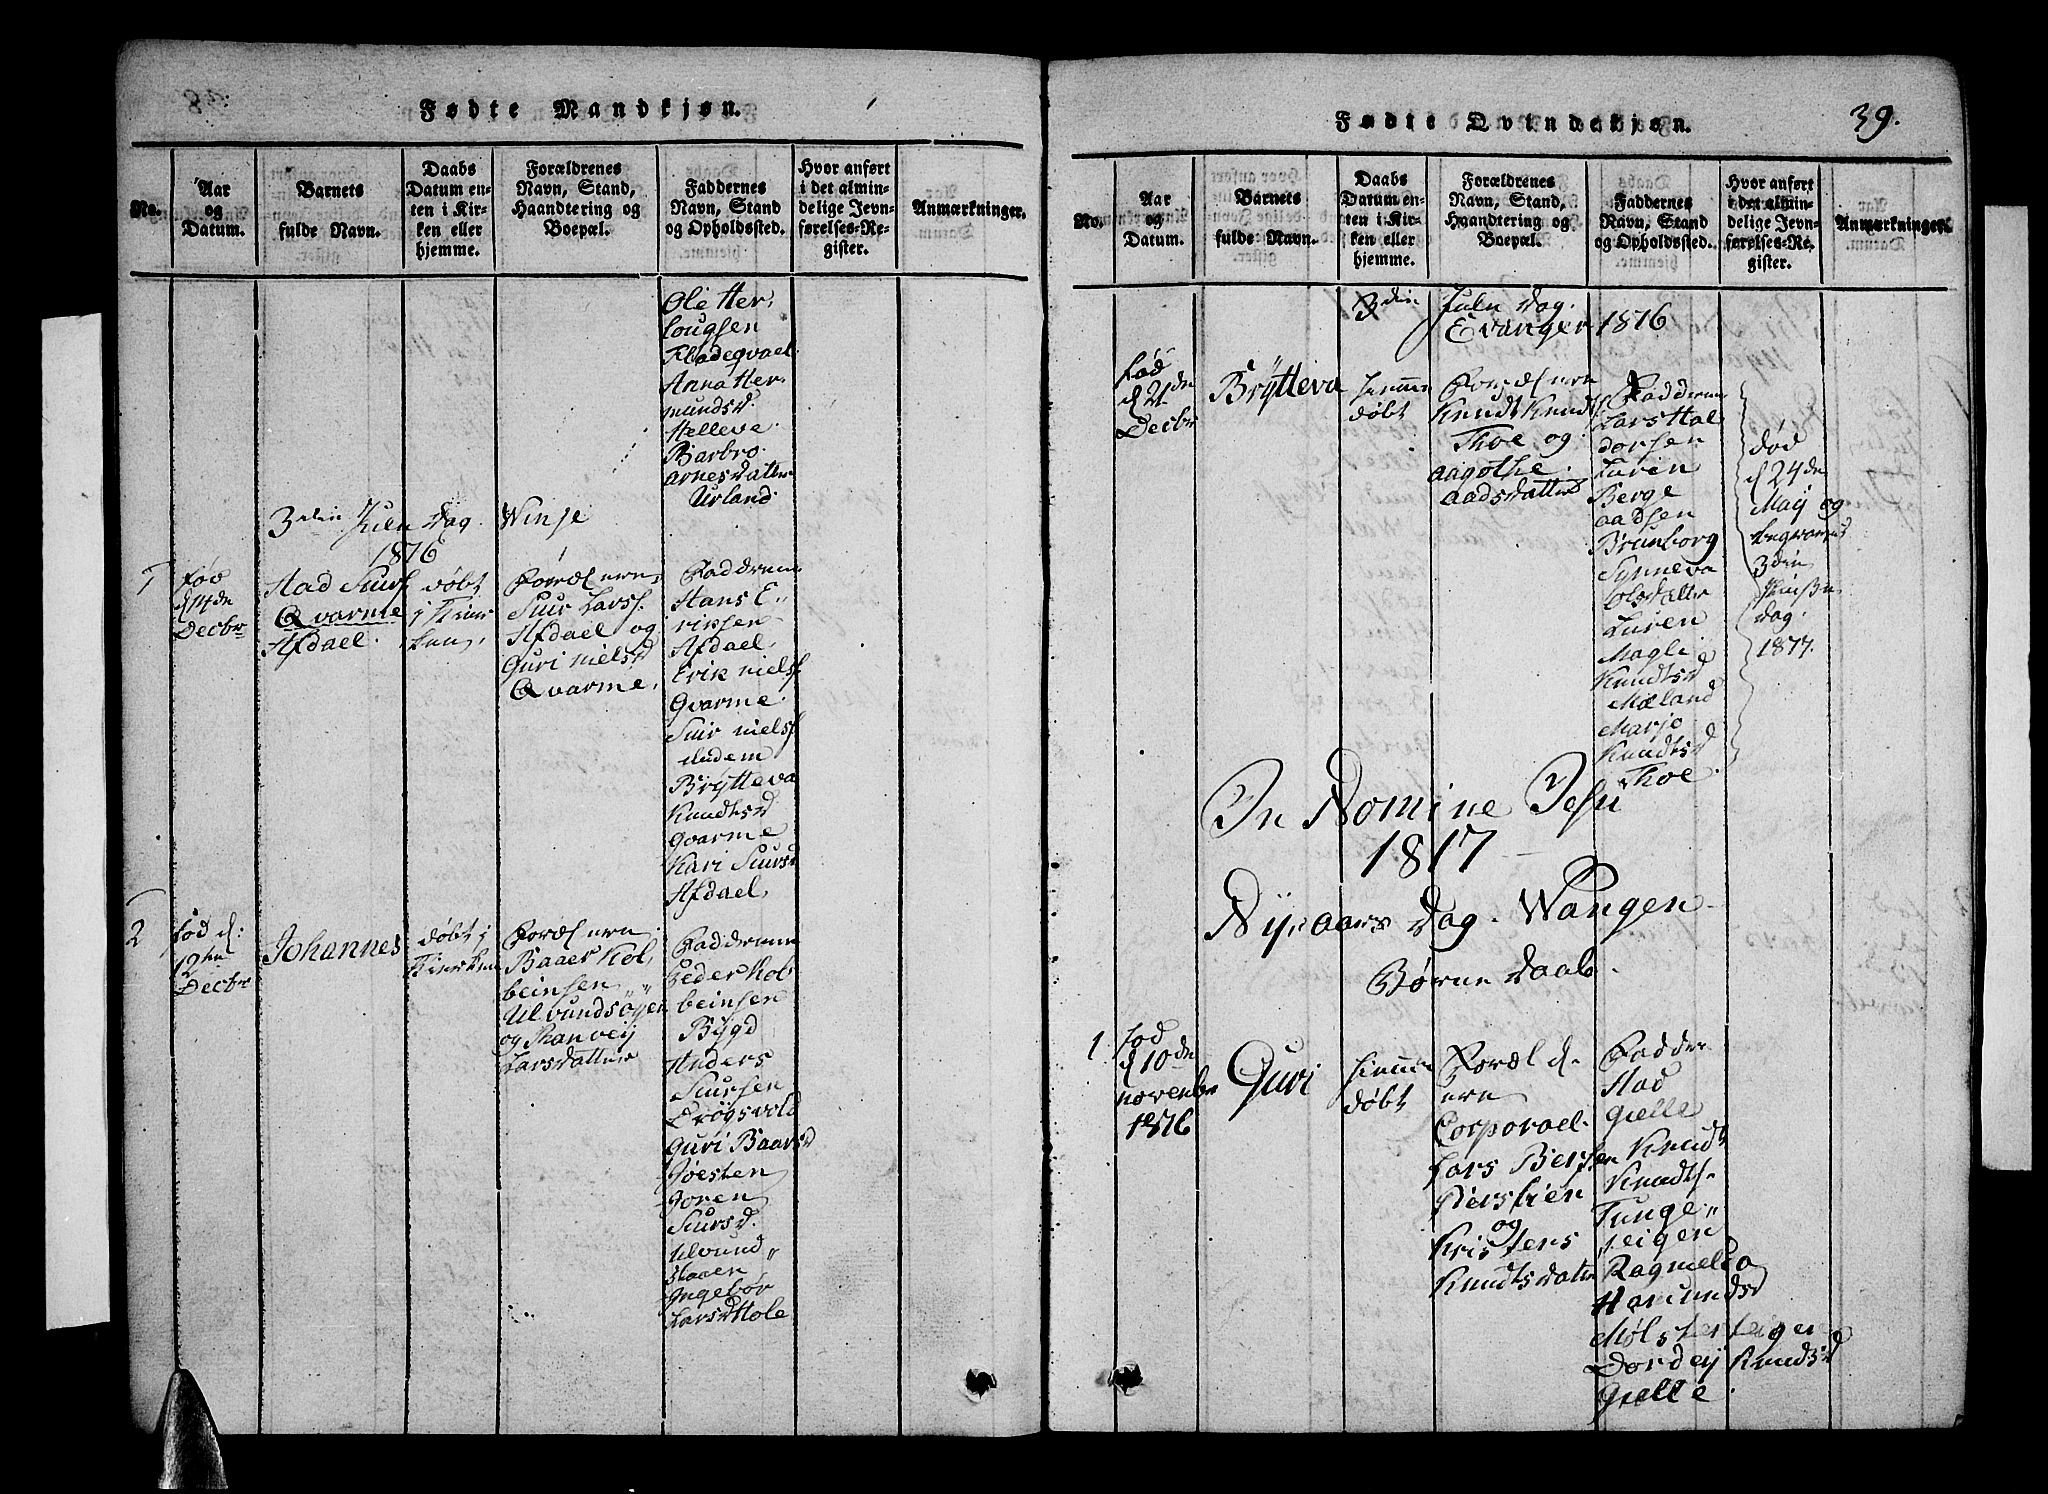 Fødte Mandkjøn.
No.
Aar
og
Datum.
Barnets
fulde Navn.
Daabs
Datum en-
ten i Kir-
ken eller
hjemme.
Forældrenes
Navn, Stand,
Haandtering og
Boepæl.
Faddernes
Navn, Stand
og Opholdssted.
Hvor anført
i det almin-
delige Jevn-
førelses-Re-
gister.
Anmærkninger.
Ole Her
lougsen
Fladeqvael
Anna Her
munds d
Helleve
Barbro
arnesdatter
Urland
3 die Jule Dag. Winje
1816
1
Fød
d 14 de
Decbr
Had Siurs
Qvarme
Afdael.
døbt
i Kier
ken,
Foræl erne
Siur Larss.
Afdael og
Guri niels d
Qvarme.
Faddrene
Hans E
riksen
Afdael,
Erik niels
Qvarme
Siur niels
Brÿtteva
Knudts d
Qvarme
Kari Siurs d
Afdael,
2
Fød d:
12 te
Decbr
Johannes
døbt i
Kierken
Foræl erne
Baaer Kol
beinsen
Ulvundsøÿen
og Ranveÿ
Larsdatter
Faddrene
Peder Kol
beinsen
Bÿgd
Anders
Siursen
Guri Baars d
Joesten
Joren
Siurs d.
Ulvund
Ingebør
Lars d Hole
39.
Fødte Qvindekjøn.
No.
Aar
og
Datum.
Barnets
fulde Navn.
Daabs
Datum en-
ten i Kir-
ken eller
hjemme.
Forældrenes
Navn, Stand,
Haandtering og
Boepæl.
Faddernes
Navn, Stand
og Opholdssted.
Hvor anført
i det almin-
delige Jevn-
førelses-Re-
gister.
Anmærkninger.
3 die Jule Dag.
Evanger 1816
Fød
d 21 de
Decbr
Brÿtteva
hiemme
døbt
Foræl erne
Knudt Knudts
Thoe og
aagothe
aadsdatter
Faddrene
Lars Hal
dorsen
Luren
Berge
aadsen
Brunborg
Synneva
olsdatter
Luren
Magli
Knudts d
Mæland
Marjo
Knudts d
Thoe.
død
d 24 de
Maÿ og
begraven
3 die
Dag
1817.
In Nomine Jesu
1817
Nÿeaars Dag. Wangen
Børne Daab.
1
Fød
d 10 de
november
1816
Guri
hiemme
døbt
Foræl d-
rene
Corporael
Lars Bersen
og
Kristens
Knudtsdatter
Faddre
Had
Gielle
Knudt
Knudts
Tunge
teigen
Ragnelda
Hamunds d
Mølsterteigen
Dordeÿ Knuds d
Gielle